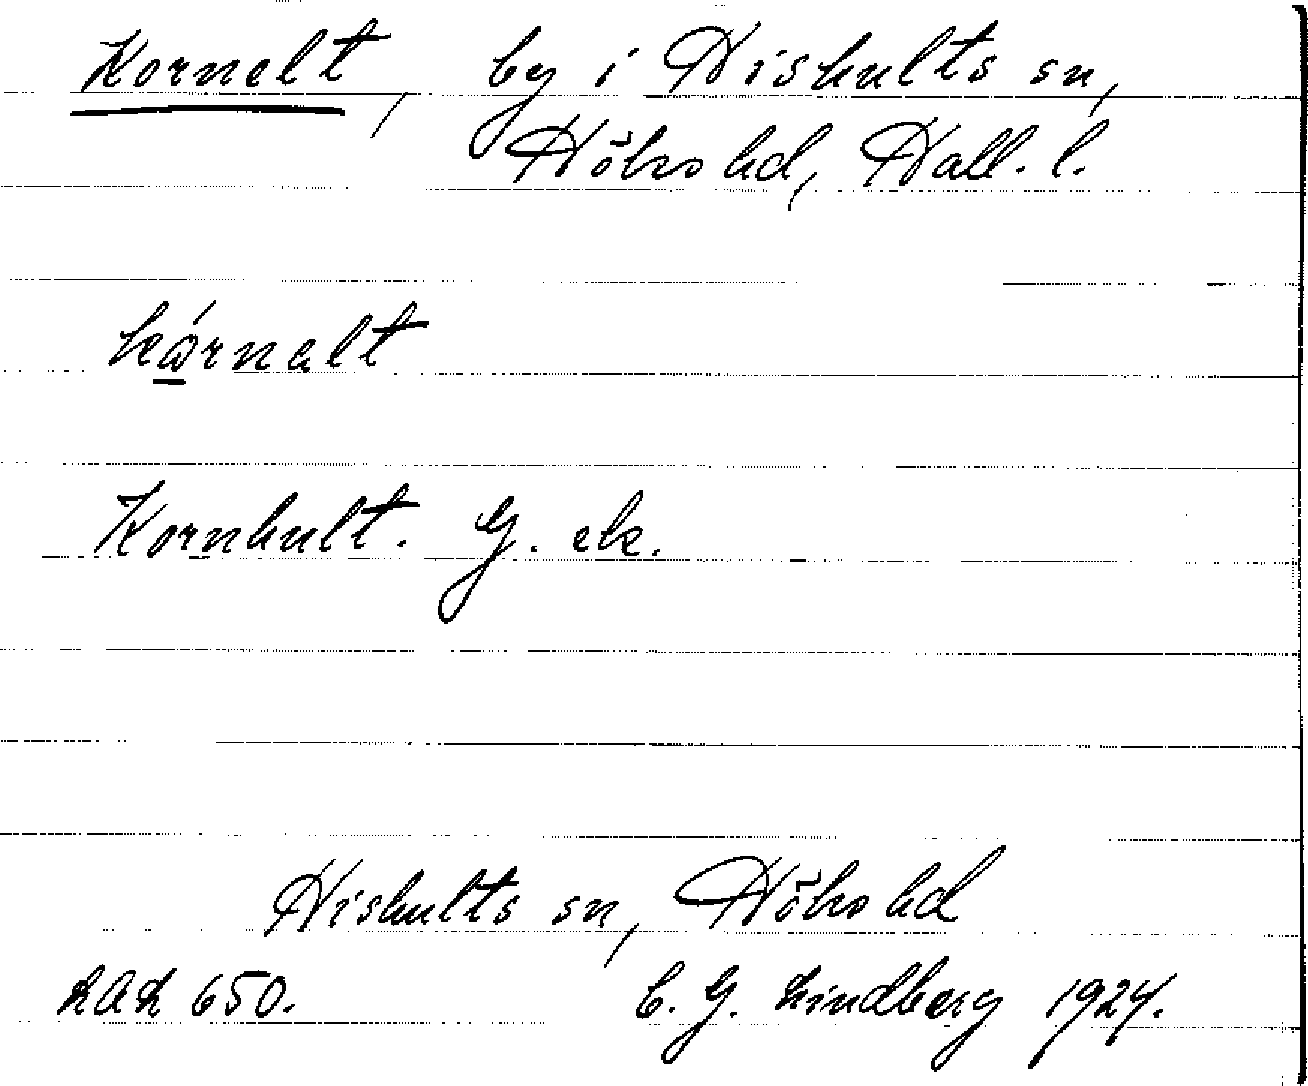 Kornelt, by i Hishults sn,
Höks hd, Hall. l.
kǫ́rnalt
Kornhult. G. ek.
Hishults sn, Höks hd
LAL 650. C. G. Lindberg 1924.